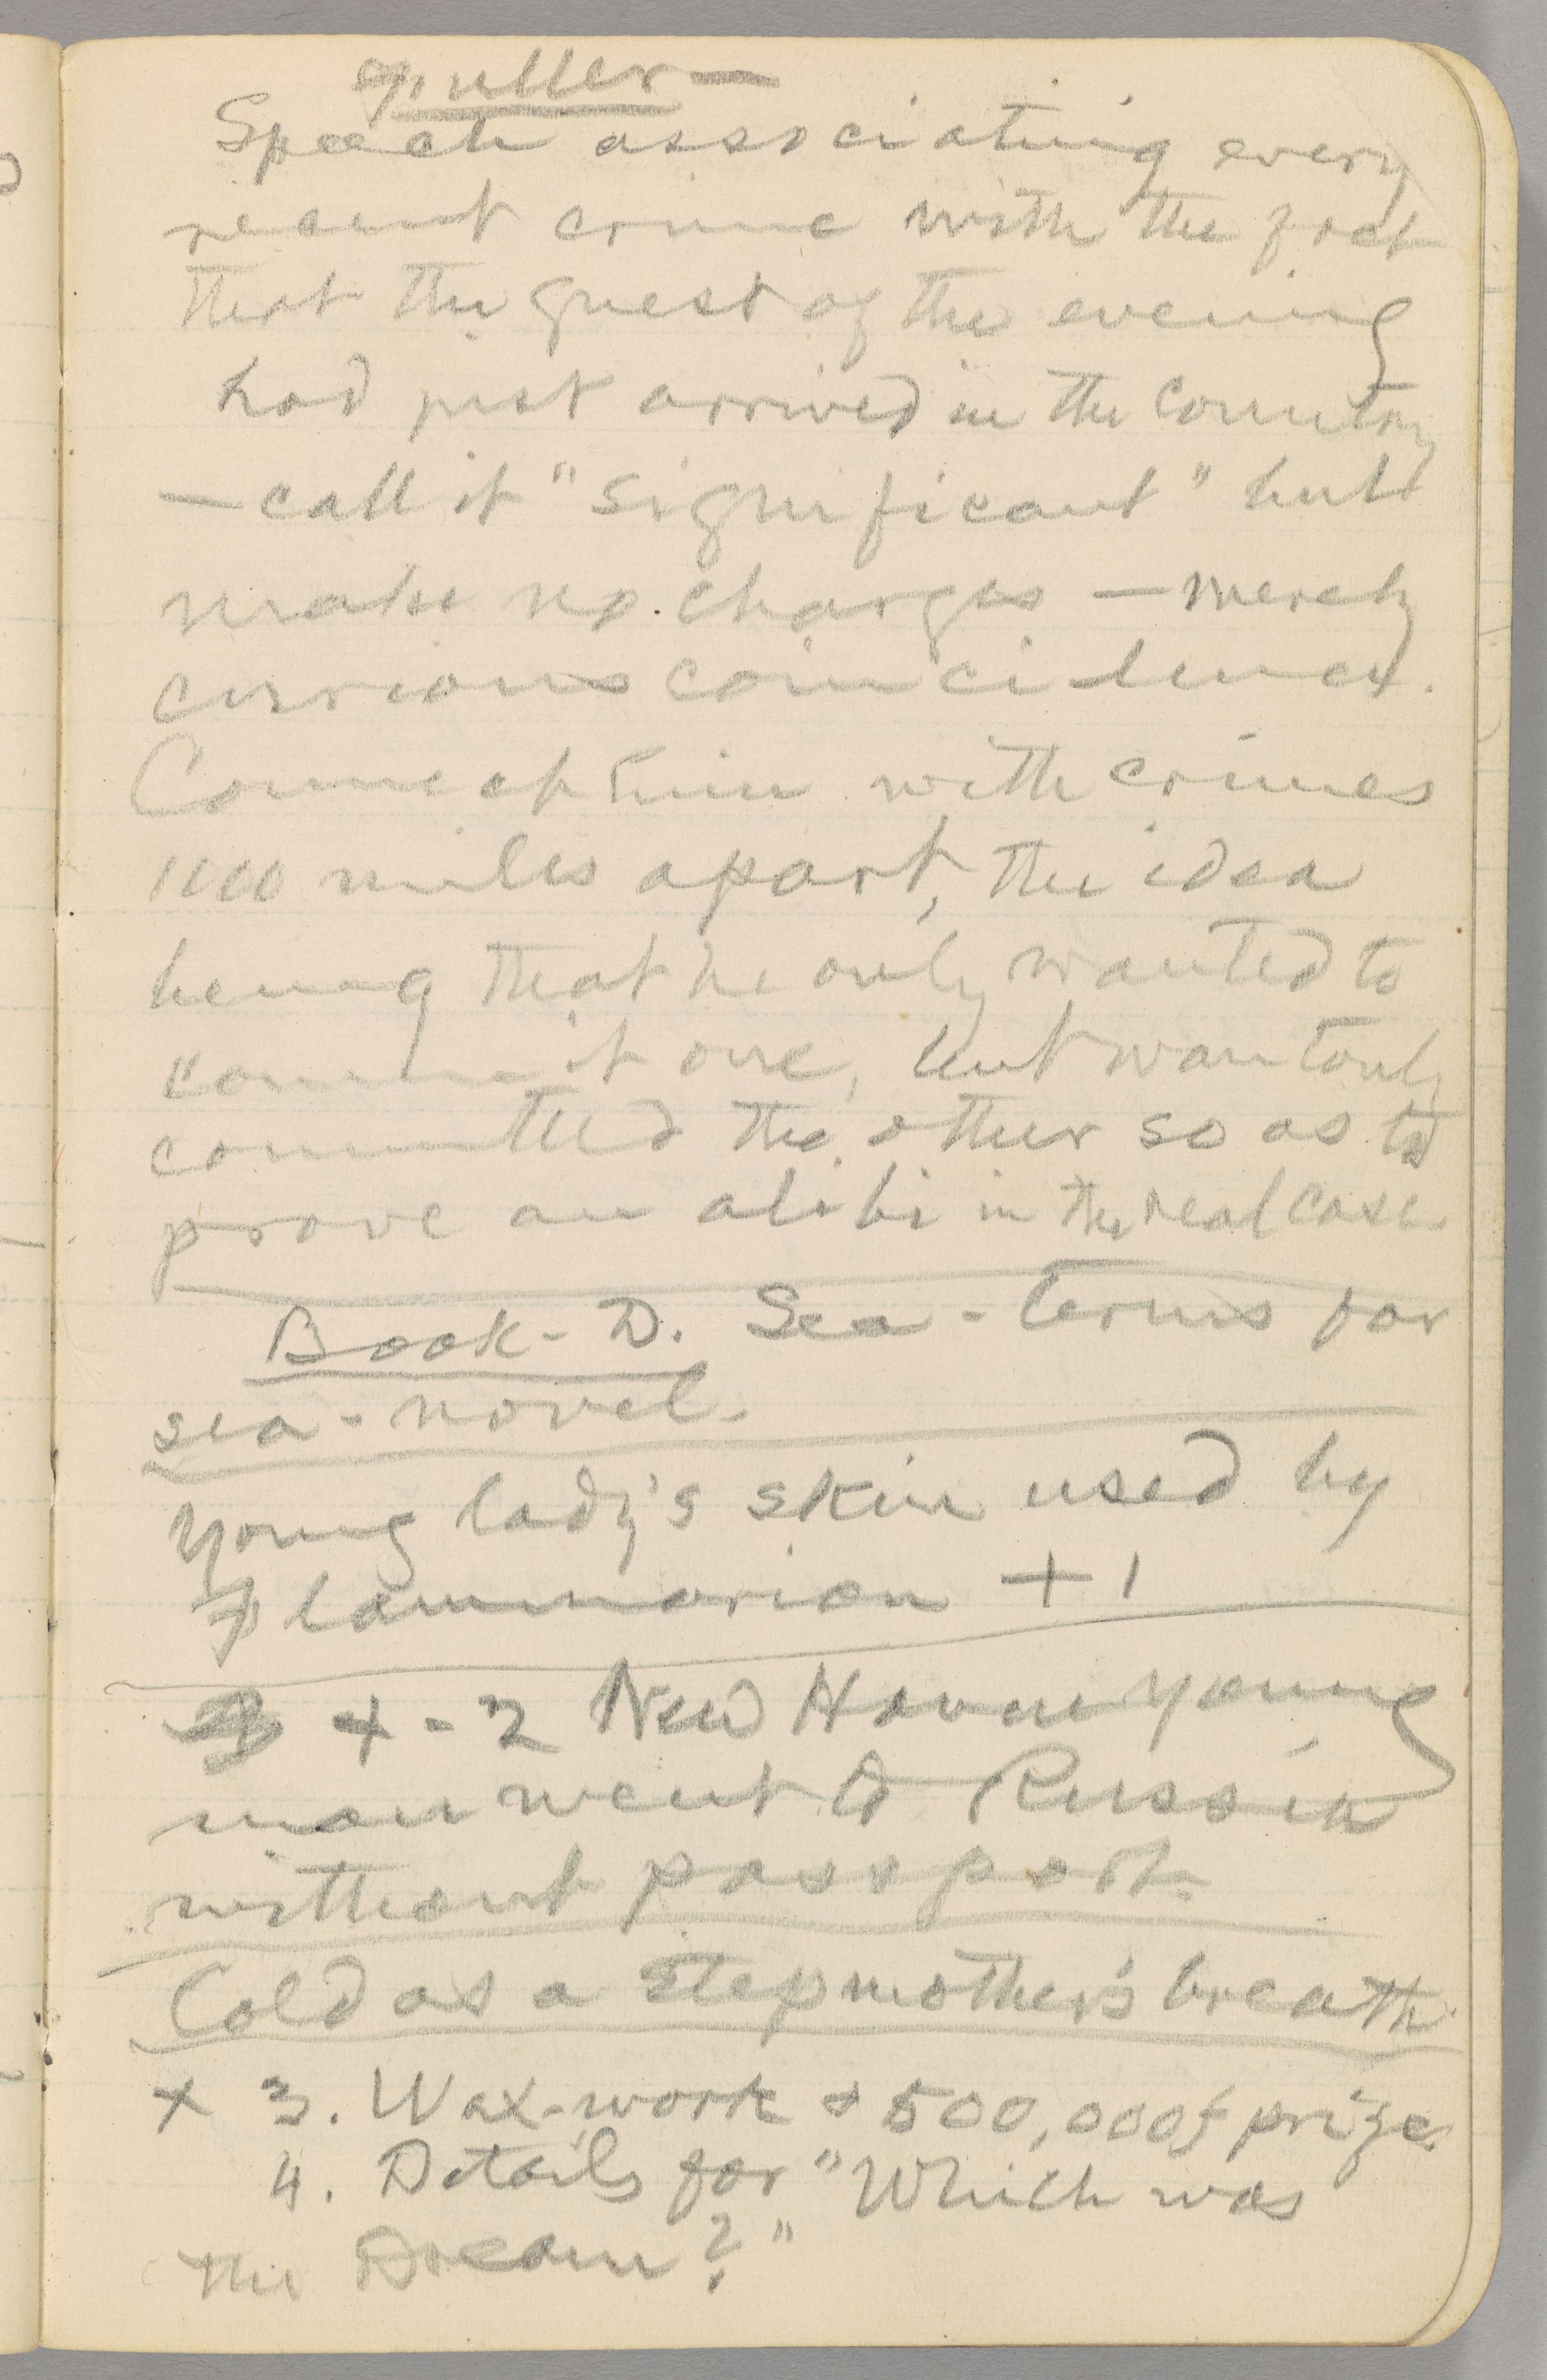 Speech associating every
recent crime with the fact
that the guest of the evening
had just arrived in the country
— call it "significant" but
make no charges — merely
curious coincidence.
Connect him with crimes
1000 miles apart, the idea
being that he only wanted to
commit one, but wantonly
committed the other so as to
prove an alibi in the real case.
Book-D. Sea-terms for
sea-novel.
Young lady's skin used by
Flammarion + 1
+ - 2 New Haven young
man went to Russia
without passport.
Cold as a stepmother's breath
+ 3. Wax-work & 500,000f prize.
4. Details for "Which was
the Dream?"